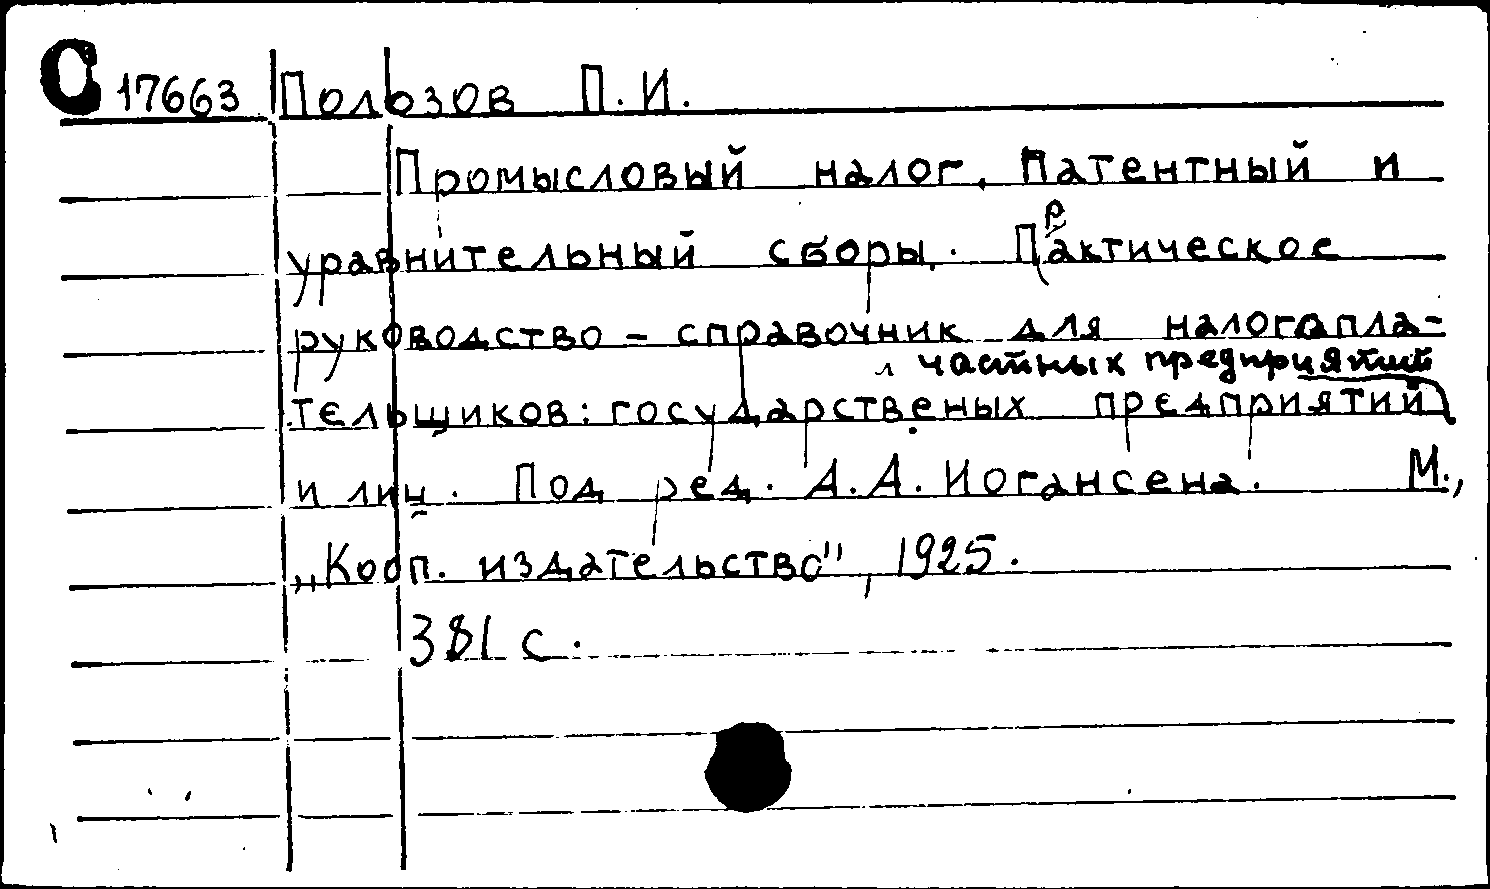 С 17663 Полозов П. И.
Промысловый налог. Патентный и
уравнительный сборы. Практическое
руководство - справочник для налогопла-
частных предприятий
тельщиков: государственых предприятий
и лиц. Под ред. А.А. Иогансена. М.,
„Кооп. издательство", 1925.
381 с.